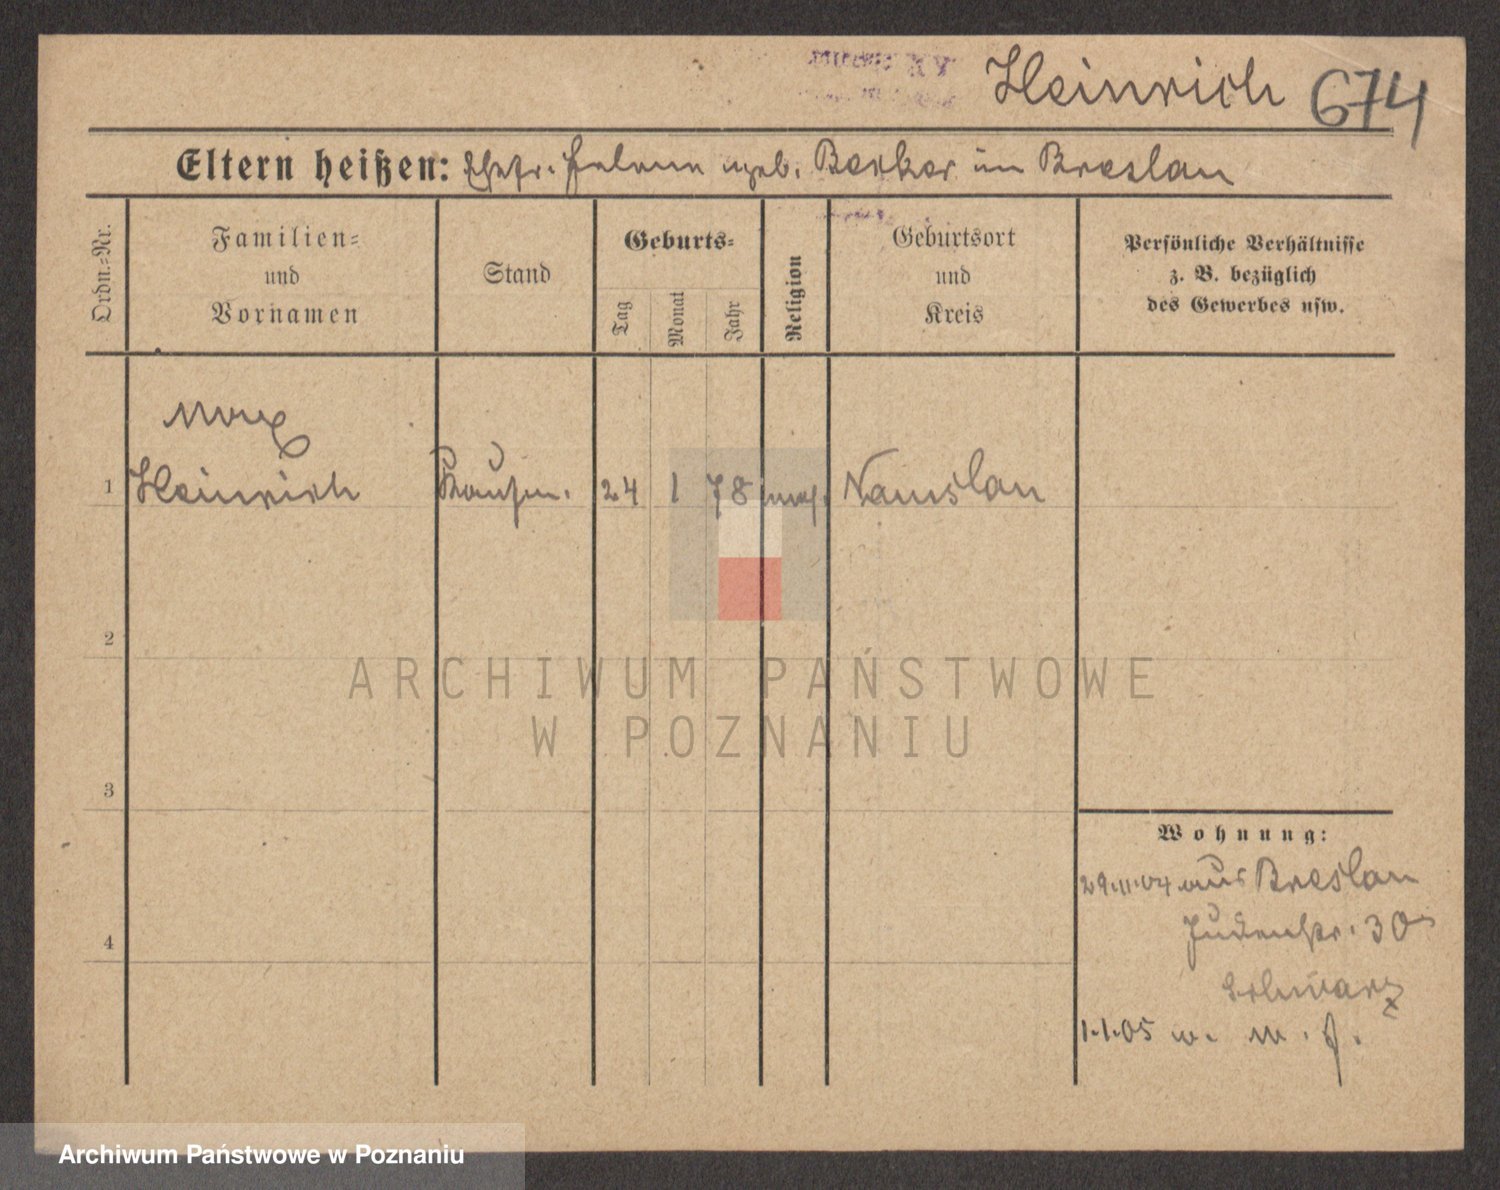 Heinrich 674
Eltern heißen: Ehefr. Helene geb. Becker in Breslau
Ordn.-Nr.
Familien-
und
Vornamen
Stand
Geburts-
Tag
Monat
Jahr
Religion
Geburtsort
und
Kreis
Persönliche Verhältnisse
z. B. bezüglich
des Gewerbes usw.
Max
1 Heinrich Kaufm. 24 1 78 Namslau
2
3
4
Wohnung:
29.11.04 aus Breslau
Judenstr. 30
Schwarz
1.1.05
ARCHIWUM PAŃSTWOWE
W POZNANIU
Archiwum Państwowe w Poznaniu